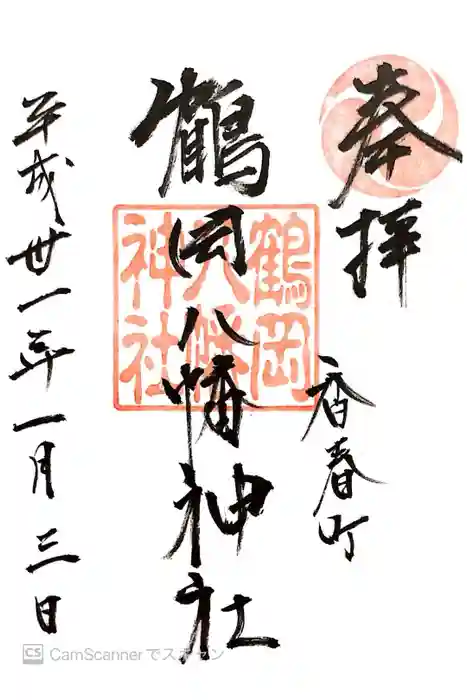 奉拝
香春町
鶴岡八幡神社
鶴岡
八幡
神社
平成丗一年一月三日
CS CamScannerでスキャン